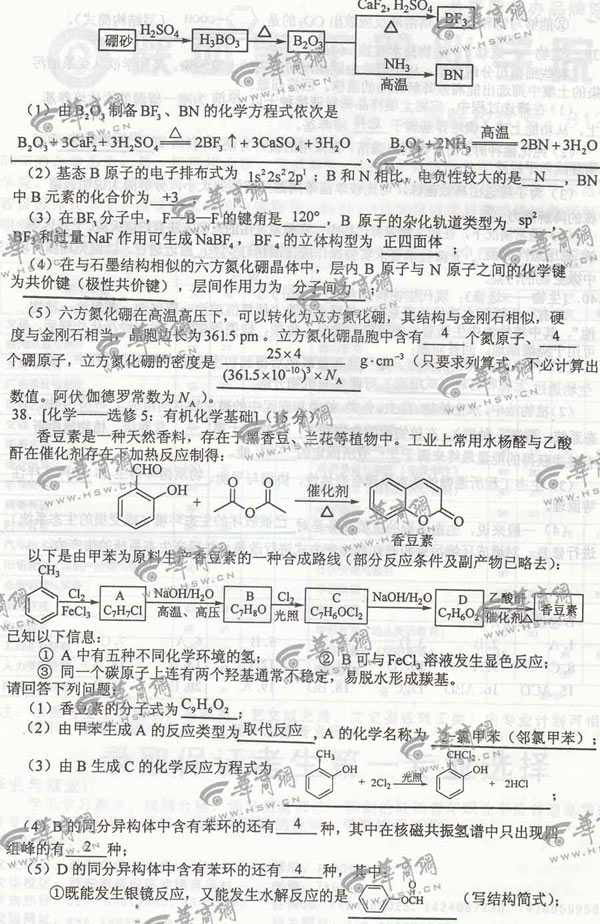 CaF₂, H₂SO₄
BF₃
硼砂 H₂SO₄ H₃BO₃ △ B₂O₃ △
NH₃
高温
BN
(1) 由B₂O₃制备BF₃、BN的化学方程式依次是
B₂O₃+3CaF₂+3H₂SO₄ △ 2BF₃↑+3CaSO₄+3H₂O B₂O₃+2NH₃ 高温 2BN+3H₂O
(2) 基态B原子的电子排布式为 1s²2s²2p¹ ; B和N相比, 电负性较大的是 N , BN
中B元素的化合价为 +3
(3) 在BF₃分子中, F—B—F的键角是 120° , B原子的杂化轨道类型为 sp² ,
BF₃和过量NaF作用可生成NaBF₄, BF₄⁻的立体构型为 正四面体 ;
(4) 在与石墨结构相似的六方氮化硼晶体中, 层内B原子与N原子之间的化学键
为共价键(极性共价键), 层间作用力为 分子间力 ;
(5) 六方氮化硼在高温高压下, 可以转化为立方氮化硼, 其结构与金刚石相似, 硬
度与金刚石相当, 晶胞边长为361.5 pm。立方氮化硼晶胞中含有 4 个氮原子、 4
个硼原子, 立方氮化硼的密度是 25×4 / (361.5×10⁻¹⁰)³×N_A g·cm⁻³ (只要求列算式, 不必计算出
数值。阿伏伽德罗常数为N_A)。
38. [化学——选修5: 有机化学基础] (15分)
香豆素是一种天然香料, 存在于黑香豆、兰花等植物中。工业上常用水杨醛与乙酸
酐在催化剂存在下加热反应制得:
CHO
OH + O O O 催化剂 △ O O
香豆素
以下是由甲苯为原料生产香豆素的一种合成路线(部分反应条件及副产物已略去):
CH₃
Cl₂ FeCl₃ A C₇H₇Cl NaOH/H₂O 高温、高压 B C₇H₈O Cl₂ 光照 C C₇H₆OCl₂ NaOH/H₂O D C₇H₆O₂ 乙酸酐 催化剂△ 香豆素
已知以下信息:
① A中有五种不同化学环境的氢; ② B可与FeCl₃溶液发生显色反应;
③ 同一个碳原子上连有两个羟基通常不稳定, 易脱水形成羰基。
请回答下列问题:
(1) 香豆素的分子式为 C₉H₆O₂ ;
(2) 由甲苯生成A的反应类型为 取代反应 , A的化学名称为 2-氯甲苯(邻氯甲苯);
(3) 由B生成C的化学反应方程式为
CH₃ OH + 2Cl₂ 光照 CHCl₂ OH + 2HCl ;
(4) B的同分异构体中含有苯环的还有 4 种, 其中在核磁共振氢谱中只出现四
组峰的有 2 种;
(5) D的同分异构体中含有苯环的还有 4 种, 其中:
①既能发生银镜反应, 又能发生水解反应的是 O OCH (写结构简式);
华商网
WWW.HSW.CN